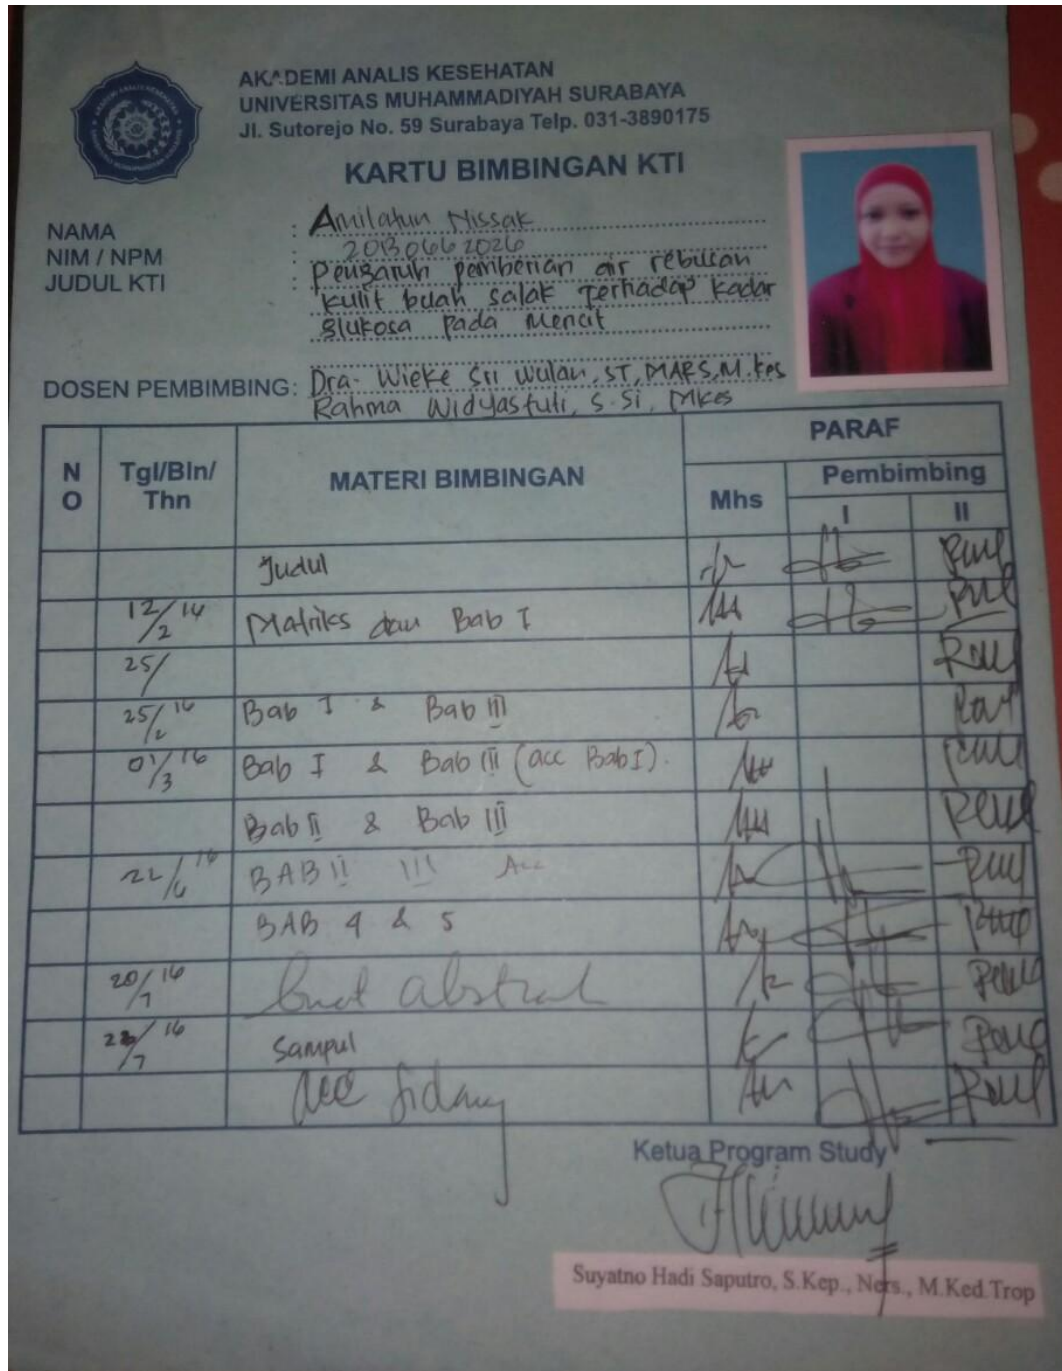 AKADEMI ANALIS KESEHATAN
UNIVERSITAS MUHAMMADIYAH SURABAYA
Jl. Sutorejo No. 59 Surabaya Telp. 031-3890175
KARTU BIMBINGAN KTI
NAMA : Amilatun Nissak
NIM / NPM : 20130662026
JUDUL KTI : Pengaruh pemberian air rebusan
kulit buah salak Terhadap kadar
glukosa pada Mencit
DOSEN PEMBIMBING: Dra. Wieke Sri Wulan, ST, MARS, M.kes
Rahma Widyastuti, S.Si, Mkes
NO Tgl/Bln/Thn MATERI BIMBINGAN PARAF
Mhs Pembimbing
I II
Judul
12/2 16 Matriks dan Bab I
25/
25/2 16 Bab I & Bab III
01/3 16 Bab I & Bab III (acc Bab I).
Bab II & Bab III
22/6 16 BAB II III Acc
BAB 4 & 5
20/7 16 buat abstrak
/7 16 Sampul
acc sidang
Ketua Program Study
Suyatno Hadi Saputro, S.Kep., Ners., M.Ked.Trop